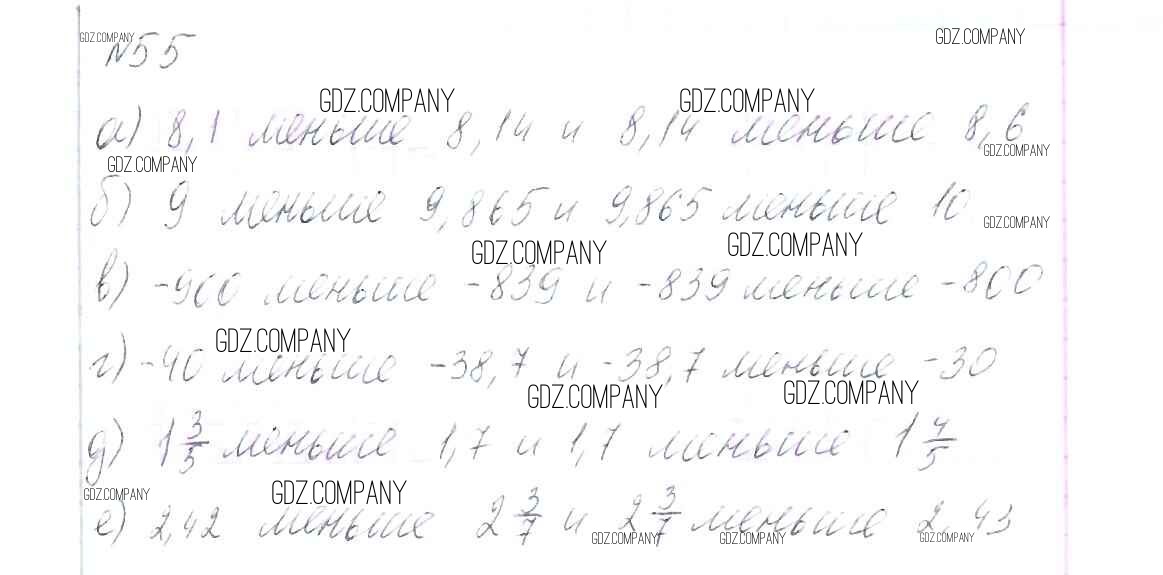 GDZ.COMPANY
№55
GDZ.COMPANY
GDZ.COMPANY GDZ.COMPANY
а) 8,1 меньше 8,14 и 8,14 меньше 8,6
GDZ.COMPANY GDZ.COMPANY
б) 9 меньше 9,865 и 9,865 меньше 10
GDZ.COMPANY
GDZ.COMPANY GDZ.COMPANY
в) -900 меньше -839 и -839 меньше -800
GDZ.COMPANY
г) -40 меньше -38,7 и -38,7 меньше -30
GDZ.COMPANY GDZ.COMPANY
д) 1 3/5 меньше 1,7 и 1,7 меньше 1 4/5
GDZ.COMPANY GDZ.COMPANY
е) 2,42 меньше 2 3/7 и 2 3/7 меньше 2,43
GDZ.COMPANY GDZ.COMPANY GDZ.COMPANY